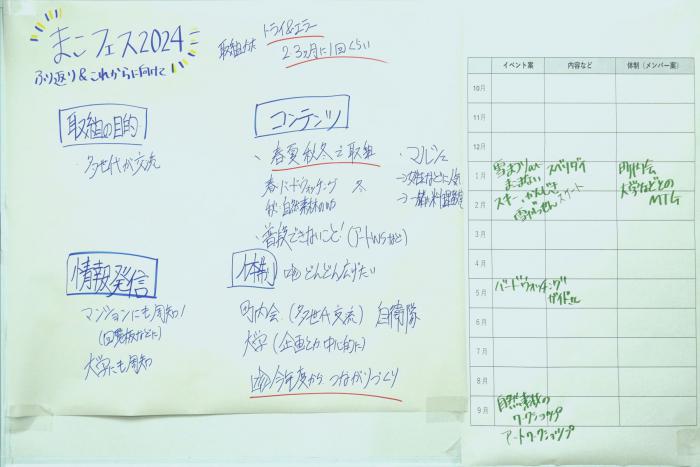 まこフェス2024
ふり返り&これからに向けて
取組方法 トライ&エラー
2 3ヵ月に1回くらい
取組の目的
・多世代が交流
コンテンツ
・春夏秋冬で取組
春:バードウォッチング 冬
秋:自然素材
・普段できないこと!(アートWSなど)
・マルシェ
情報発信
マンションにも周知!
(回覧板などに)
大学にも周知
体制
どんどん広げたい
町内会(多世代交流) 自衛隊
大学(企画とか中心的に)
今年度から つながりづくり
イベント案 内容など 体制(メンバー案)
10月
11月
12月
1月 雪まつりin まこまない スベリダイ 町内会
大学などとの
MTG
2月 スキー、かんじき スケート
雪がっせん
3月
4月
5月 バードウォッチング
ガイド
6月
7月
8月
9月 自然素材の
ワークショップ
アートワークショップ